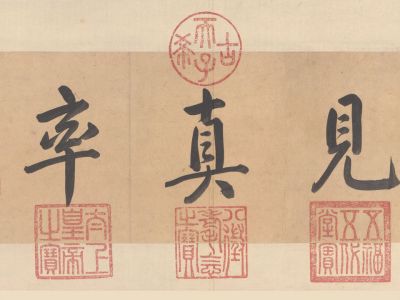 見真率
古希天子
五福五代堂寶
八徵耄念之寶
太上皇帝之寶